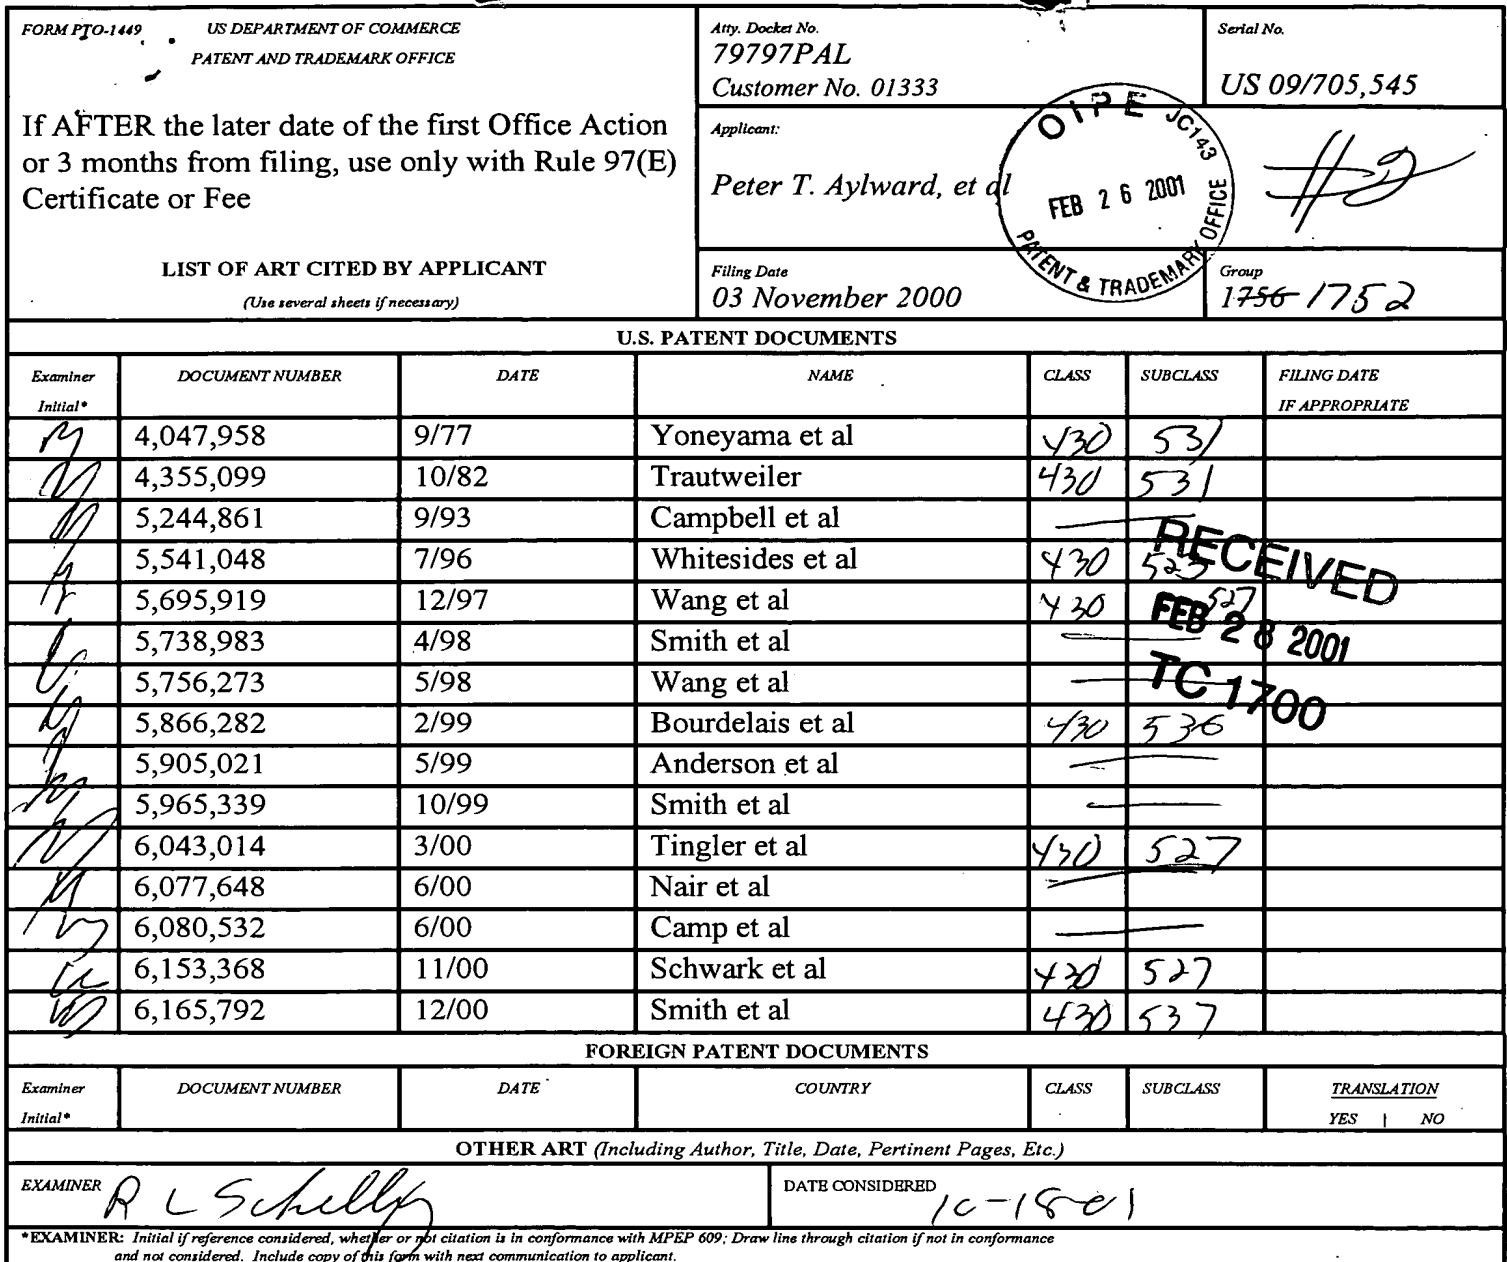 FORM PTO-1449 US DEPARTMENT OF COMMERCE
PATENT AND TRADEMARK OFFICE
If AFTER the later date of the first Office Action
or 3 months from filing, use only with Rule 97(E)
Certificate or Fee
LIST OF ART CITED BY APPLICANT
(Use several sheets if necessary)
Atty. Docket No.
79797PAL
Customer No. 01333
Serial No.
US 09/705,545
Applicant:
Peter T. Aylward, et al
OIPE JC143
FEB 26 2001
PATENT & TRADEMARK OFFICE
#2
Filing Date
03 November 2000
Group
1756 1752
U.S. PATENT DOCUMENTS
Examiner Initial* DOCUMENT NUMBER DATE NAME CLASS SUBCLASS FILING DATE IF APPROPRIATE
4,047,958 9/77 Yoneyama et al 430 531
4,355,099 10/82 Trautweiler 430 531
5,244,861 9/93 Campbell et al
5,541,048 7/96 Whitesides et al 430 523
5,695,919 12/97 Wang et al 430 527
5,738,983 4/98 Smith et al
5,756,273 5/98 Wang et al
5,866,282 2/99 Bourdelais et al 430 536
5,905,021 5/99 Anderson et al
5,965,339 10/99 Smith et al
6,043,014 3/00 Tingler et al 430 527
6,077,648 6/00 Nair et al
6,080,532 6/00 Camp et al
6,153,368 11/00 Schwark et al 430 527
6,165,792 12/00 Smith et al 430 537
RECEIVED
FEB 28 2001
TC 1700
FOREIGN PATENT DOCUMENTS
Examiner Initial* DOCUMENT NUMBER DATE COUNTRY CLASS SUBCLASS TRANSLATION
YES | NO
OTHER ART (Including Author, Title, Date, Pertinent Pages, Etc.)
EXAMINER R L Schilling DATE CONSIDERED 10-18-01
*EXAMINER: Initial if reference considered, whether or not citation is in conformance with MPEP 609; Draw line through citation if not in conformance
and not considered. Include copy of this form with next communication to applicant.